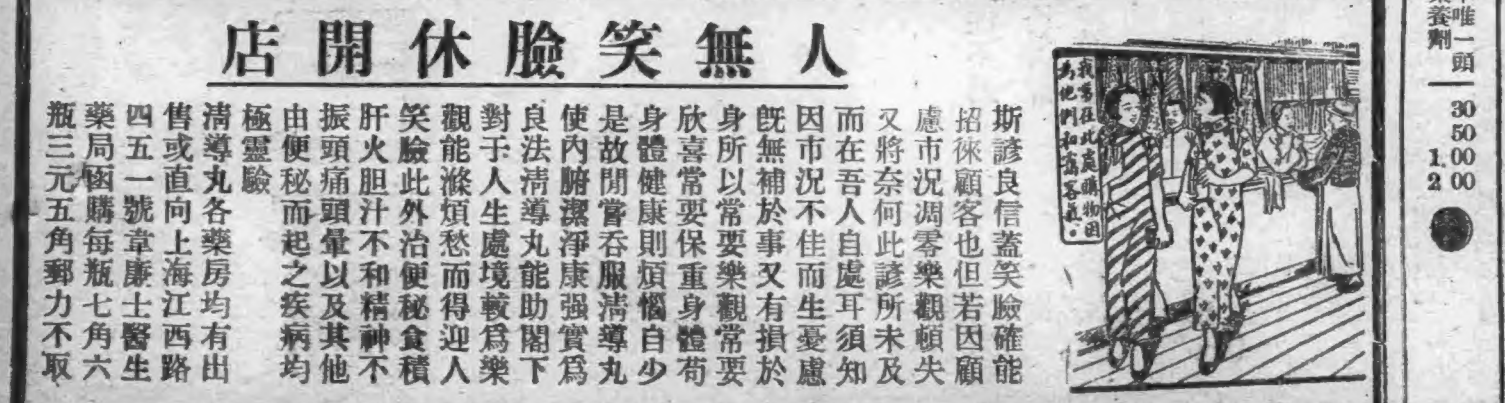 唯一頭
養劑
30
50
1.00
2.00
我常在此處購物因
爲他們和靄客氣.
人無笑臉休開店
斯諺良信蓋笑臉確能
招徠顧客也但若因顧
慮市況凋零樂觀頓失
又將奈何此諺所未及
而在吾人自處耳須知
因市況不佳而生憂慮
既無補於事又有損於
身所以常要樂觀常要
欣喜常要保重身體苟
身體健康則煩惱自少
是故閒嘗吞服清導丸
使內腑潔淨康强實爲
良法清導丸能助閣下
對于人生處境較爲樂
觀能滌煩愁而得迎人
笑臉此外治便秘食積
肝火胆汁不和精神不
振頭痛頭暈以及其他
由便秘而起之疾病均
極靈驗
清導丸各藥房均有出
售或直向上海江西路
四五一號韋廉士醫生
藥局函購每瓶七角六
瓶三元五角郵力不取